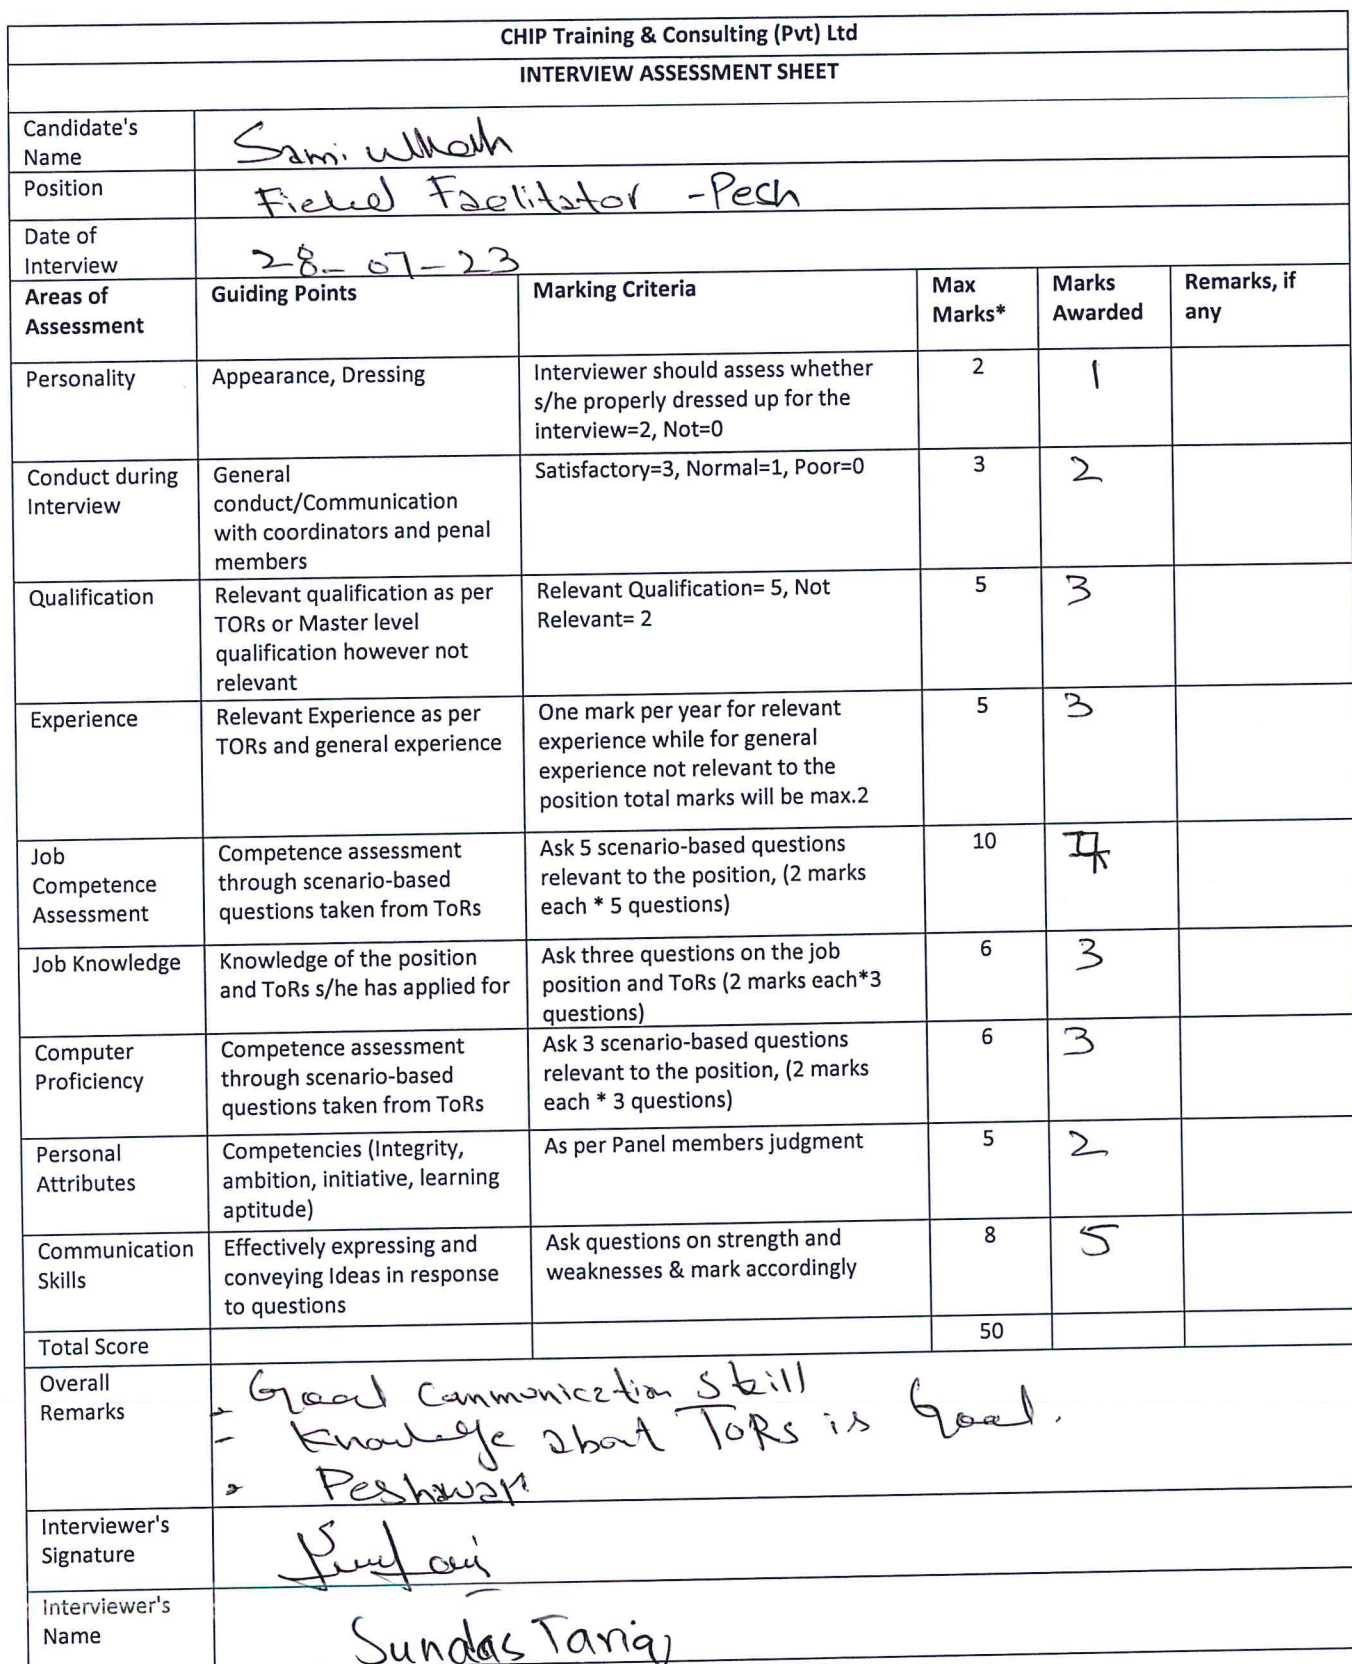 CHIP Training & Consulting (Pvt) Ltd
INTERVIEW ASSESSMENT SHEET
Candidate's
Name
Sami ullah
Position
Field Faclitator -Pesh
Date of
Interview
28-07-23
Areas of
Assessment
Guiding Points
Marking Criteria
Max
Marks*
Marks
Awarded
Remarks, if
any
Personality
Appearance, Dressing
Interviewer should assess whether
s/he properly dressed up for the
interview=2, Not=0
2
1
Conduct during
Interview
General
conduct/Communication
with coordinators and penal
members
Satisfactory=3, Normal=1, Poor=0
3
2
Qualification
Relevant qualification as per
TORs or Master level
qualification however not
relevant
Relevant Qualification= 5, Not
Relevant= 2
5
3
Experience
Relevant Experience as per
TORs and general experience
One mark per year for relevant
experience while for general
experience not relevant to the
position total marks will be max.2
5
3
Job
Competence
Assessment
Competence assessment
through scenario-based
questions taken from ToRs
Ask 5 scenario-based questions
relevant to the position, (2 marks
each * 5 questions)
10
Job Knowledge
Knowledge of the position
and ToRs s/he has applied for
Ask three questions on the job
position and ToRs (2 marks each*3
questions)
6
3
Computer
Proficiency
Competence assessment
through scenario-based
questions taken from ToRs
Ask 3 scenario-based questions
relevant to the position, (2 marks
each * 3 questions)
6
3
Personal
Attributes
Competencies (Integrity,
ambition, initiative, learning
aptitude)
As per Panel members judgment
5
2
Communication
Skills
Effectively expressing and
conveying Ideas in response
to questions
Ask questions on strength and
weaknesses & mark accordingly
8
5
Total Score
50
Overall
Remarks
- Good Communication Skill
- Knowledge about ToRs is Good.
- Peshawar
Interviewer's
Signature
Interviewer's
Name
Sundas Tariq